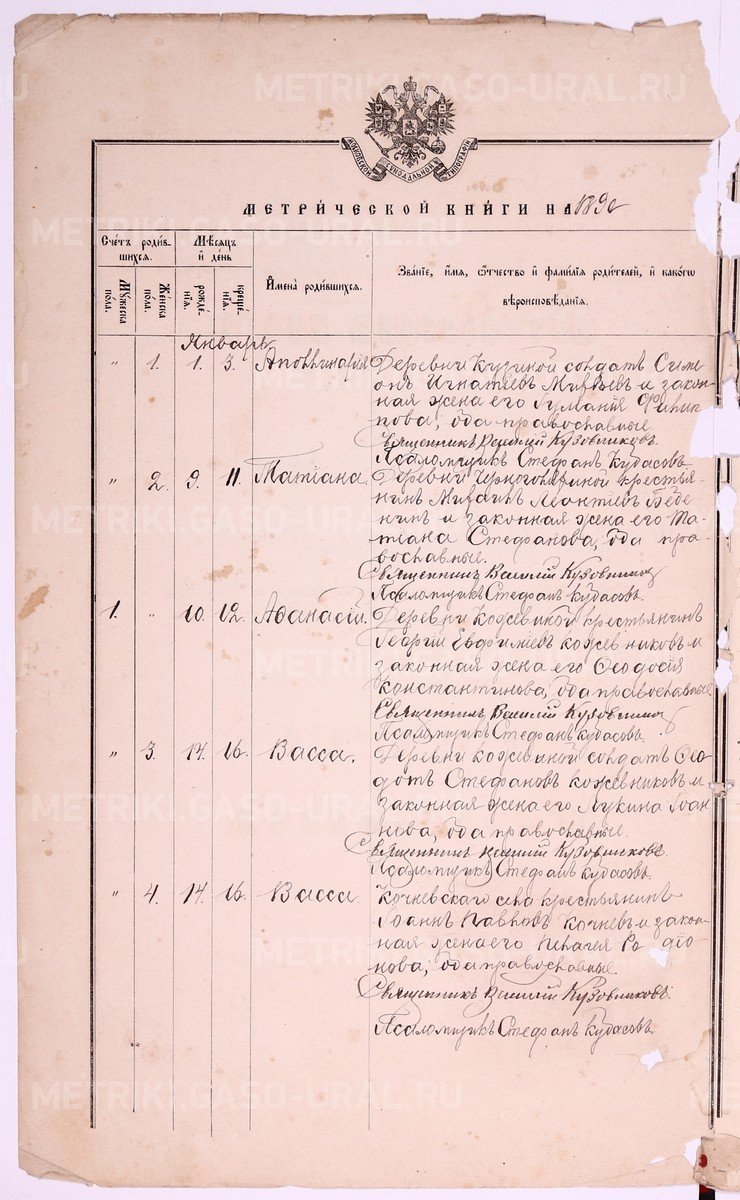 МОСКОВСКОЙ СѴНОДАЛЬНОЙ ТИПОГРАФІИ
МЕТРИ́ЧЕСКОЙ КНИ́ГИ НА 1890
Сче́тъ роди́в-
шихся.
Мѣ́сяцъ
и́ де́нь
И҆мена̀ роди́вшихся.
Зва́нїе, и҆́мя, ѻ҆́тчество и҆ фами́лїа роди́телей, и҆ како́гѡ
вѣроисповѣ́данїа.
Мꙋ́жеска по́ла.
Же́нска по́ла.
рожде́нїя.
креще́нїя.
Январь
" 1. 1. 3. Аполлинарія Деревни Куриной солдатъ Симе
онъ Игнатіевъ и закон-
ная жена его Филип
пова; оба православные.
Священникъ Василій Кузовниковъ.
Псаломщикъ Стефанъ Кудасовъ.
" 2. 9. 11. Татіана. Деревни кресть-
янинъ Леонтіевъ Беде-
нинъ и законная жена его Та-
тіана Стефанова, оба пра-
вославные.
Священникъ Василій Кузовниковъ
Псаломщикъ Стефанъ Кудасовъ.
1. " 10. 12. Аѳанасій. Деревни Кожевиной крестьянинъ
Георгій Евфиміевъ Кожевниковъ и
законная жена его Ѳеодосія
Константинова, оба православные
Священникъ Василій Кузовниковъ
Псаломщикъ Стефанъ Кудасовъ.
" 3. 14. 16. Васса. Деревни Кожевиной солдатъ Ѳео
дотъ Стефановъ Кожевниковъ и
законная жена его Лукина Іоан
нова, оба православные.
Священникъ Василій Кузовниковъ.
Псаломщикъ Стефанъ Кудасовъ.
" 4. 14. 16. Васса. Кочневскаго села крестьянинъ
Іоаннъ Павловъ Кочневъ и закон-
ная жена его Пелагея Ро діо
нова; оба православные.
Священникъ Василій Кузовниковъ.
Псаломщикъ Стефанъ Кудасовъ
METRIKI.GASO-URAL.RU